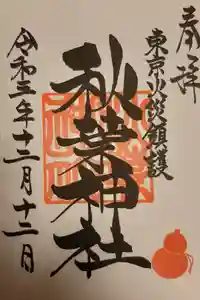 奉拝
東京火災鎮護
秋葉神社
令和三年十二月十二日